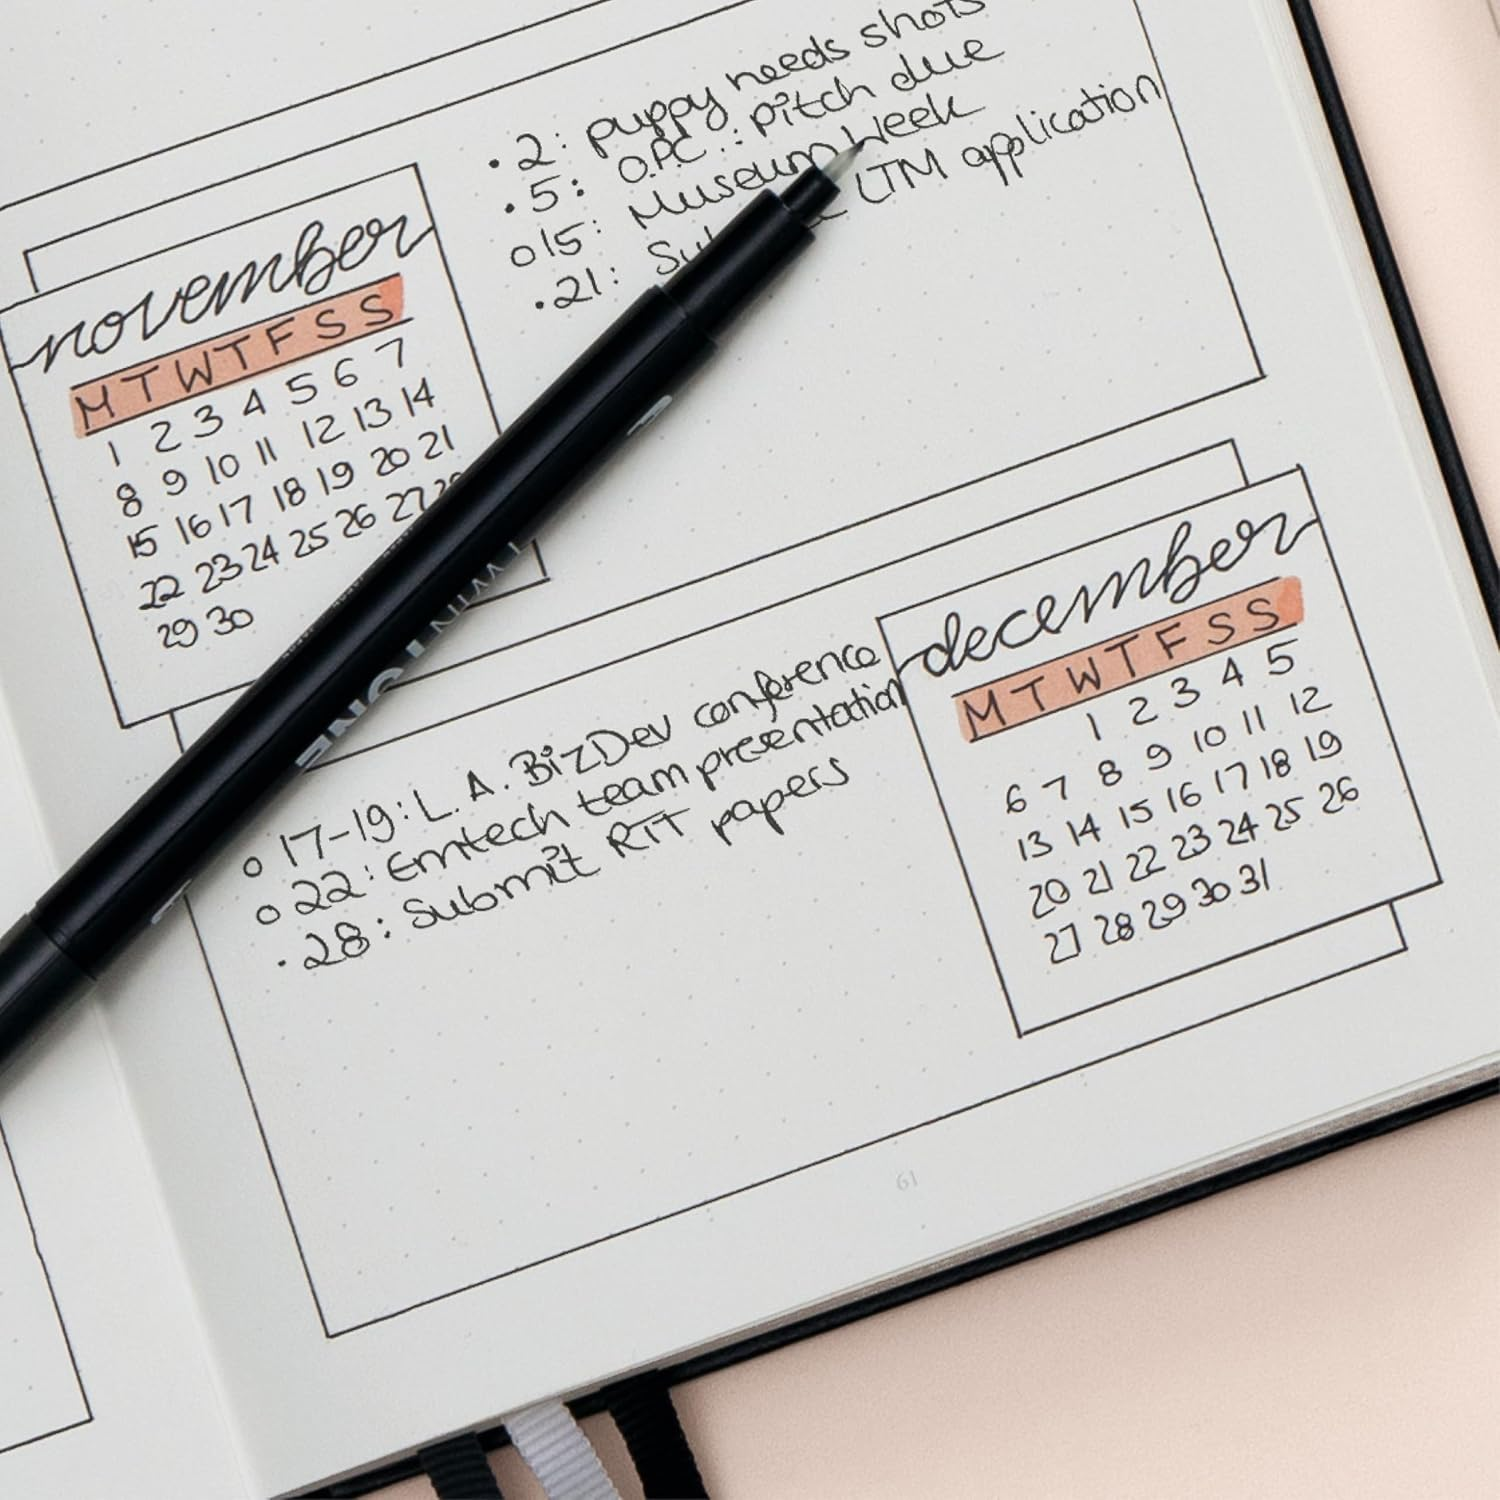 • 2: puppy needs shots
• 5: O.P.C.: pitch due
o 15: Museum Week
• 21: LTM application
november
M T W T F S S
1 2 3 4 5 6 7
8 9 10 11 12 13 14
15 16 17 18 19 20 21
22 23 24 25 26 27 28
29 30
TWINTONE
december
M T W T F S S
1 2 3 4 5
6 7 8 9 10 11 12
13 14 15 16 17 18 19
20 21 22 23 24 25 26
27 28 29 30 31
o 17-19: L.A. BizDev conference
o 22: Emtech team presentation
• 28: Submit RTT papers
61